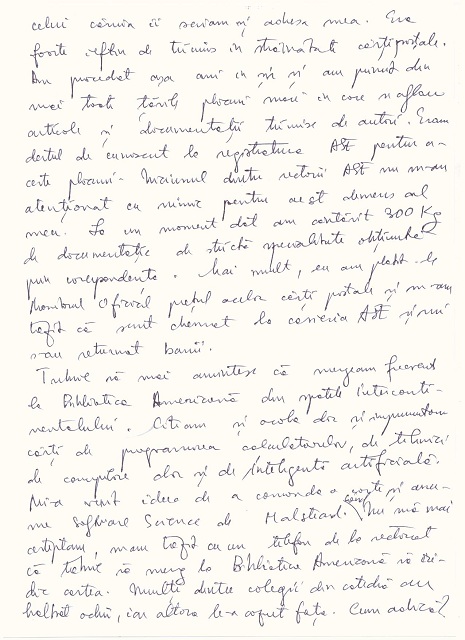 celui căruia îi scriam și adresa mea. Era
foarte ieftin de trimis în străinătate cărți poștale.
Am procedat așa ani în șir și am primit din
mai toate țările plicuri mari în care se aflau
articole și documentații trimise de autori. Eram
destul de cunoscut la registratura ASE pentru a-
ceste plicuri. Niciunul dintre rectorii ASE nu m-au
atenționat cu nimic pentru acest demers al
meu. La un moment dat am cântărit 300 Kg
de documentație de strictă specialitate obținută
prin corespondență. Mai mult, eu am plătit la
Monitorul Oficial prețul acelor cărți poștale și m-am
trezit că sunt chemat la casieria ASE și mi
s-au returnat banii.
Trebuie să mai amintesc că mergeam frecvent
la Biblioteca Americană din spatele Interconti-
nentalului. Citeam și acolo dar și împrumutam
cărți de programarea calculatoarelor, de tehnici
de compilare dar și de inteligență artificială.
Mi-a venit ideea de a comanda o carte și anu-
me Software Science de Halstead. Nu mă mai
așteptam, m-am trezit cu un telefon de la rectorat
că trebuie să merg la Biblioteca Americană să ri-
dic cartea. Mulți dintre colegii din catedră au
holbat ochii, iar altora le-a căzut fața. Cum adică?